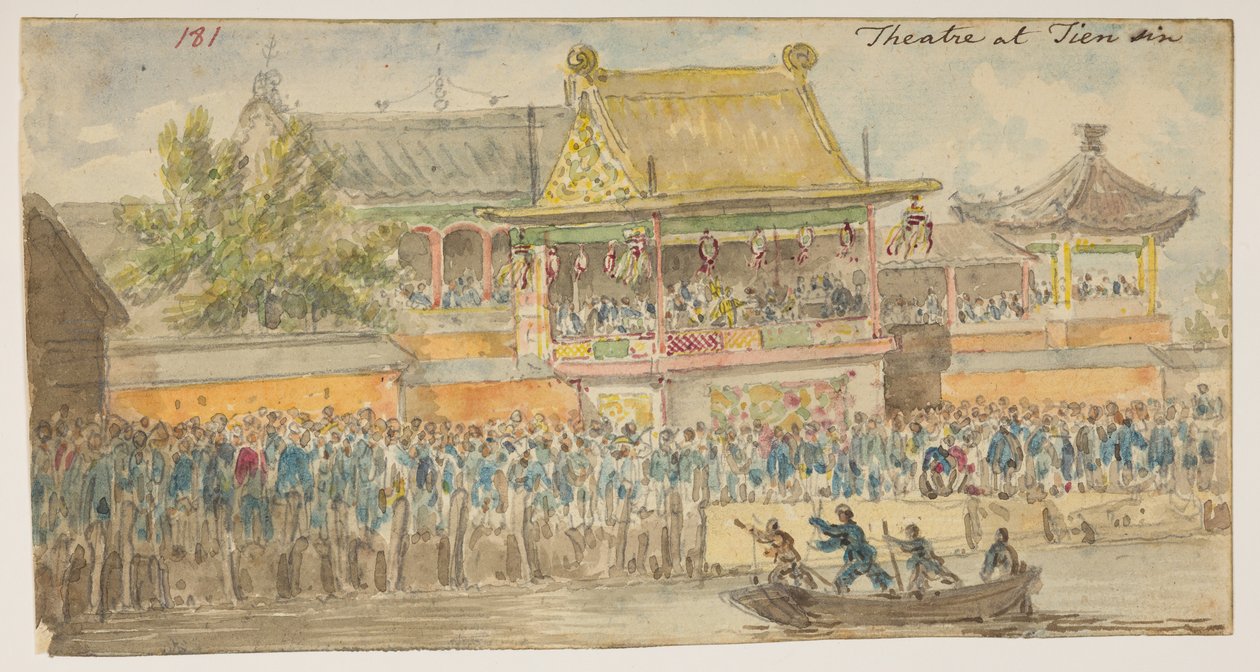 181
Theatre at Tien sin